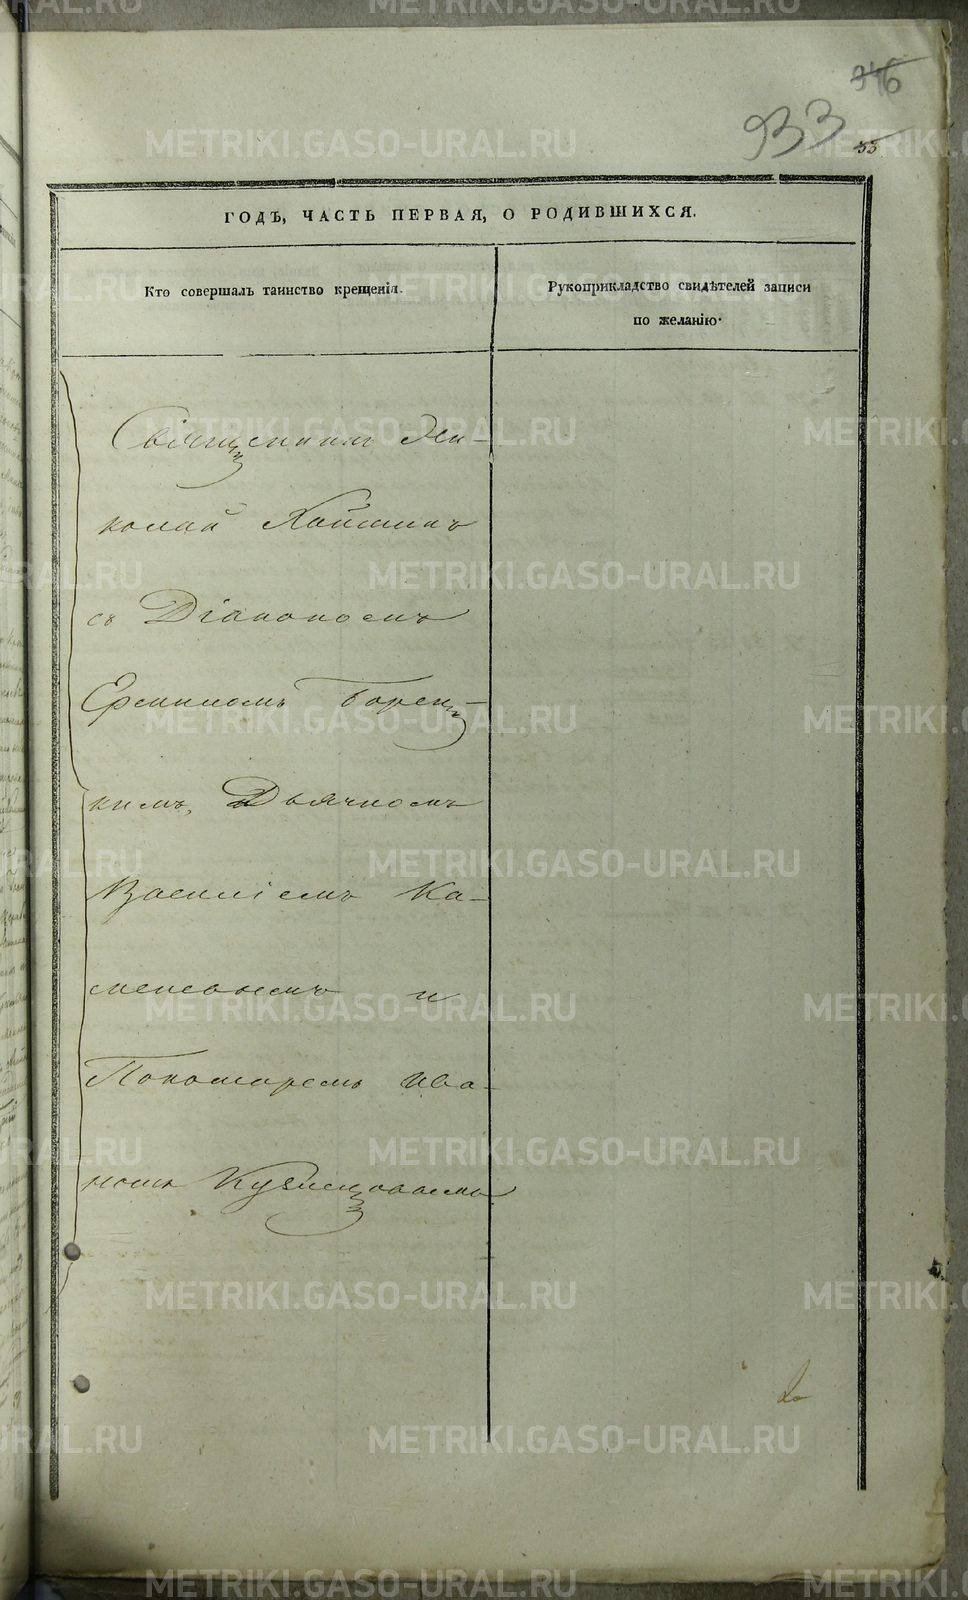 946
933
53
ГОДЪ, ЧАСТЬ ПЕРВАЯ, О РОДИВШИХСЯ.
Кто совершалъ таинство крещенія.
Рукоприкладство свидѣтелей записи
по желанію.
Священникъ Ни-
колай
съ Діакономъ
кимъ, Дьячкомъ
Василіемъ Ка-
меневымъ и
Пономаремъ Ива-
номъ Кузнецовымъ
METRIKI.GASO-URAL.RU